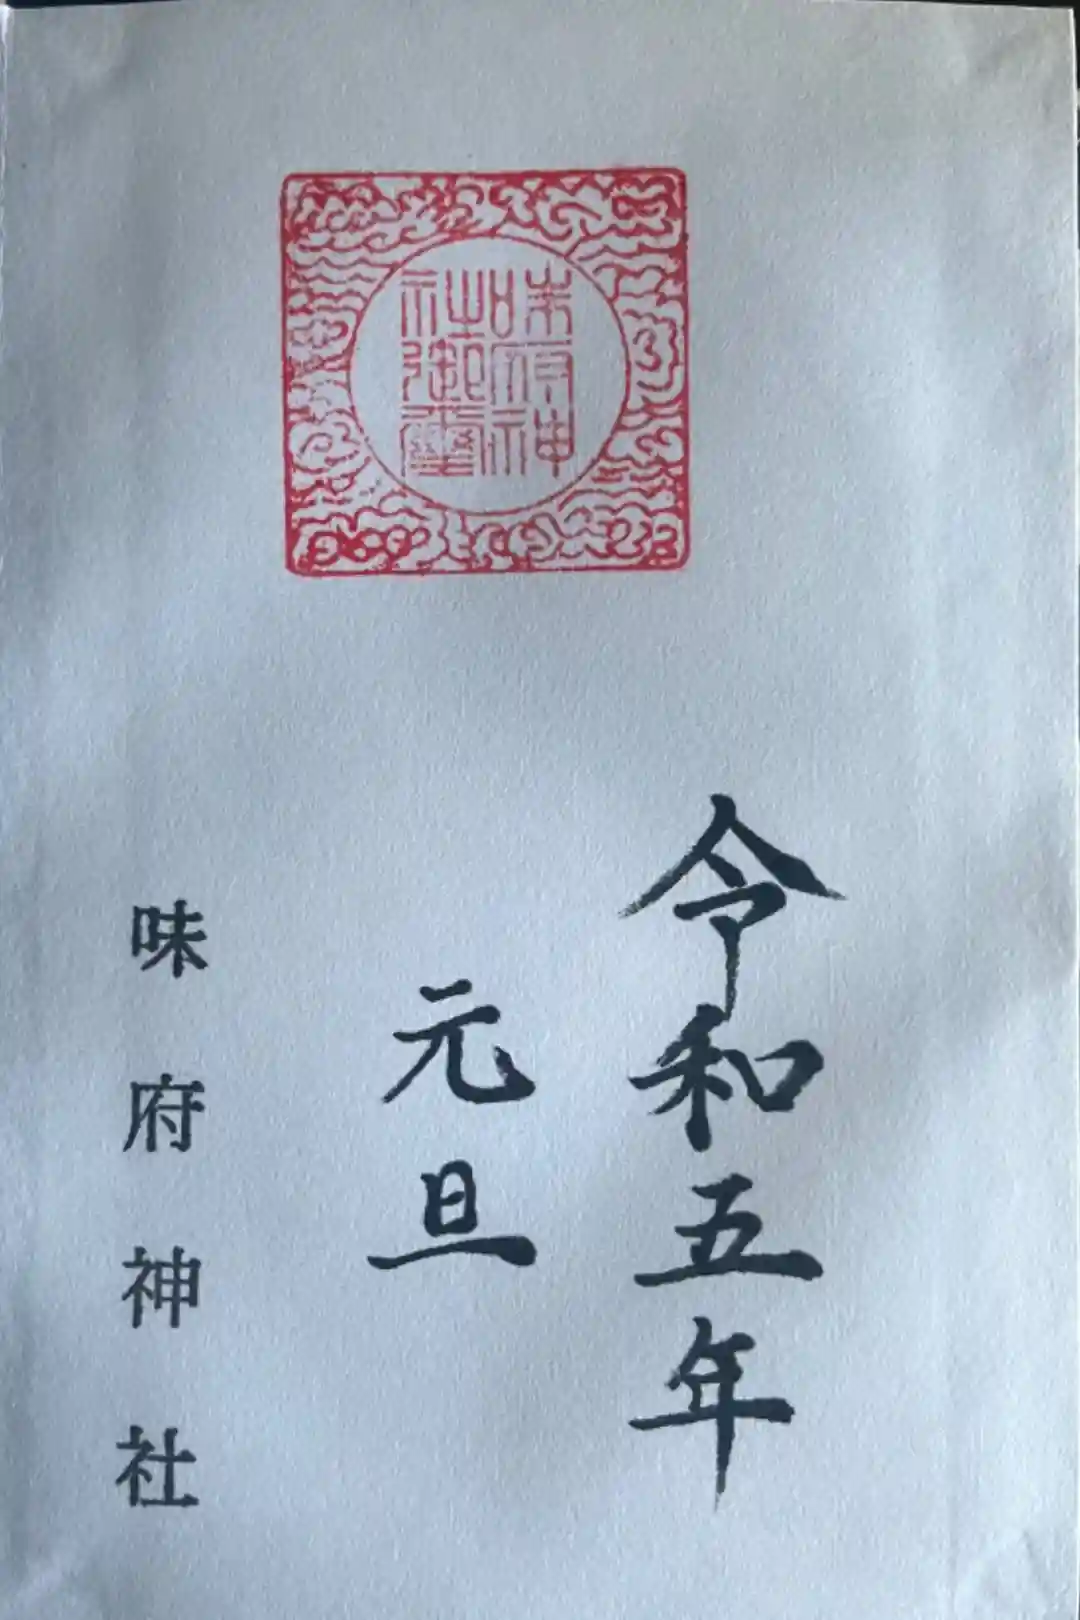 味府神社御璽
令和五年
元旦
味府神社